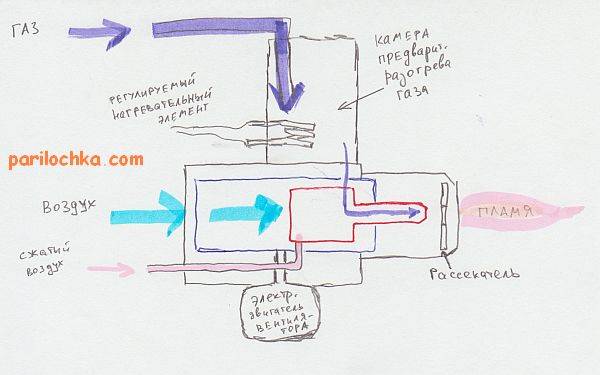 ГАЗ
КАМЕРА
ПРЕДВАРИТ.
РАЗОГРЕВА
ГАЗА
РЕГУЛИРУЕМЫЙ
НАГРЕВАТЕЛЬНЫЙ
ЭЛЕМЕНТ
parilochka.com
ВОЗДУХ
ПЛАМЯ
СЖАТЫЙ
ВОЗДУХ
Рассекатель
ЭЛЕКТР.
ДВИГАТЕЛЬ
ВЕНТИЛЯ-
ТОРА